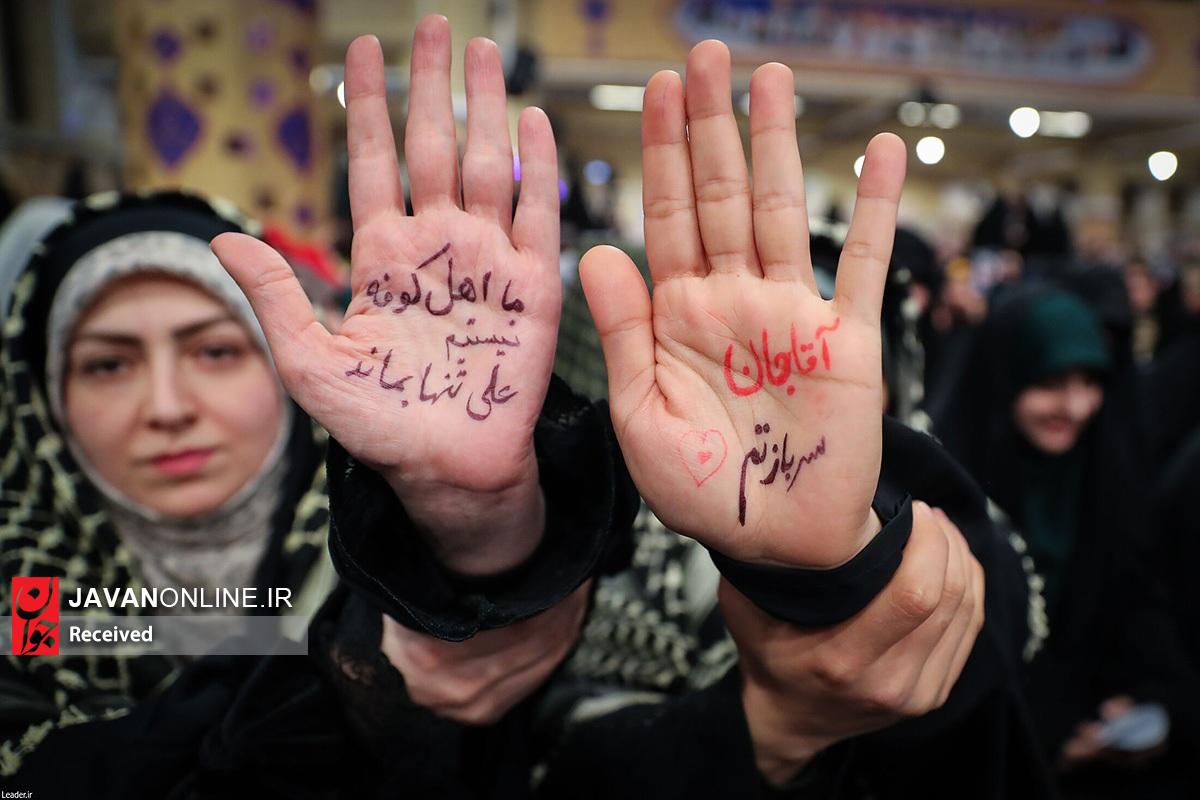 ما اهل کوفه
نیستیم
علی تنها بماند
آقاجان
سربازتم
جوان
JAVANONLINE.IR
Received
Leader.ir